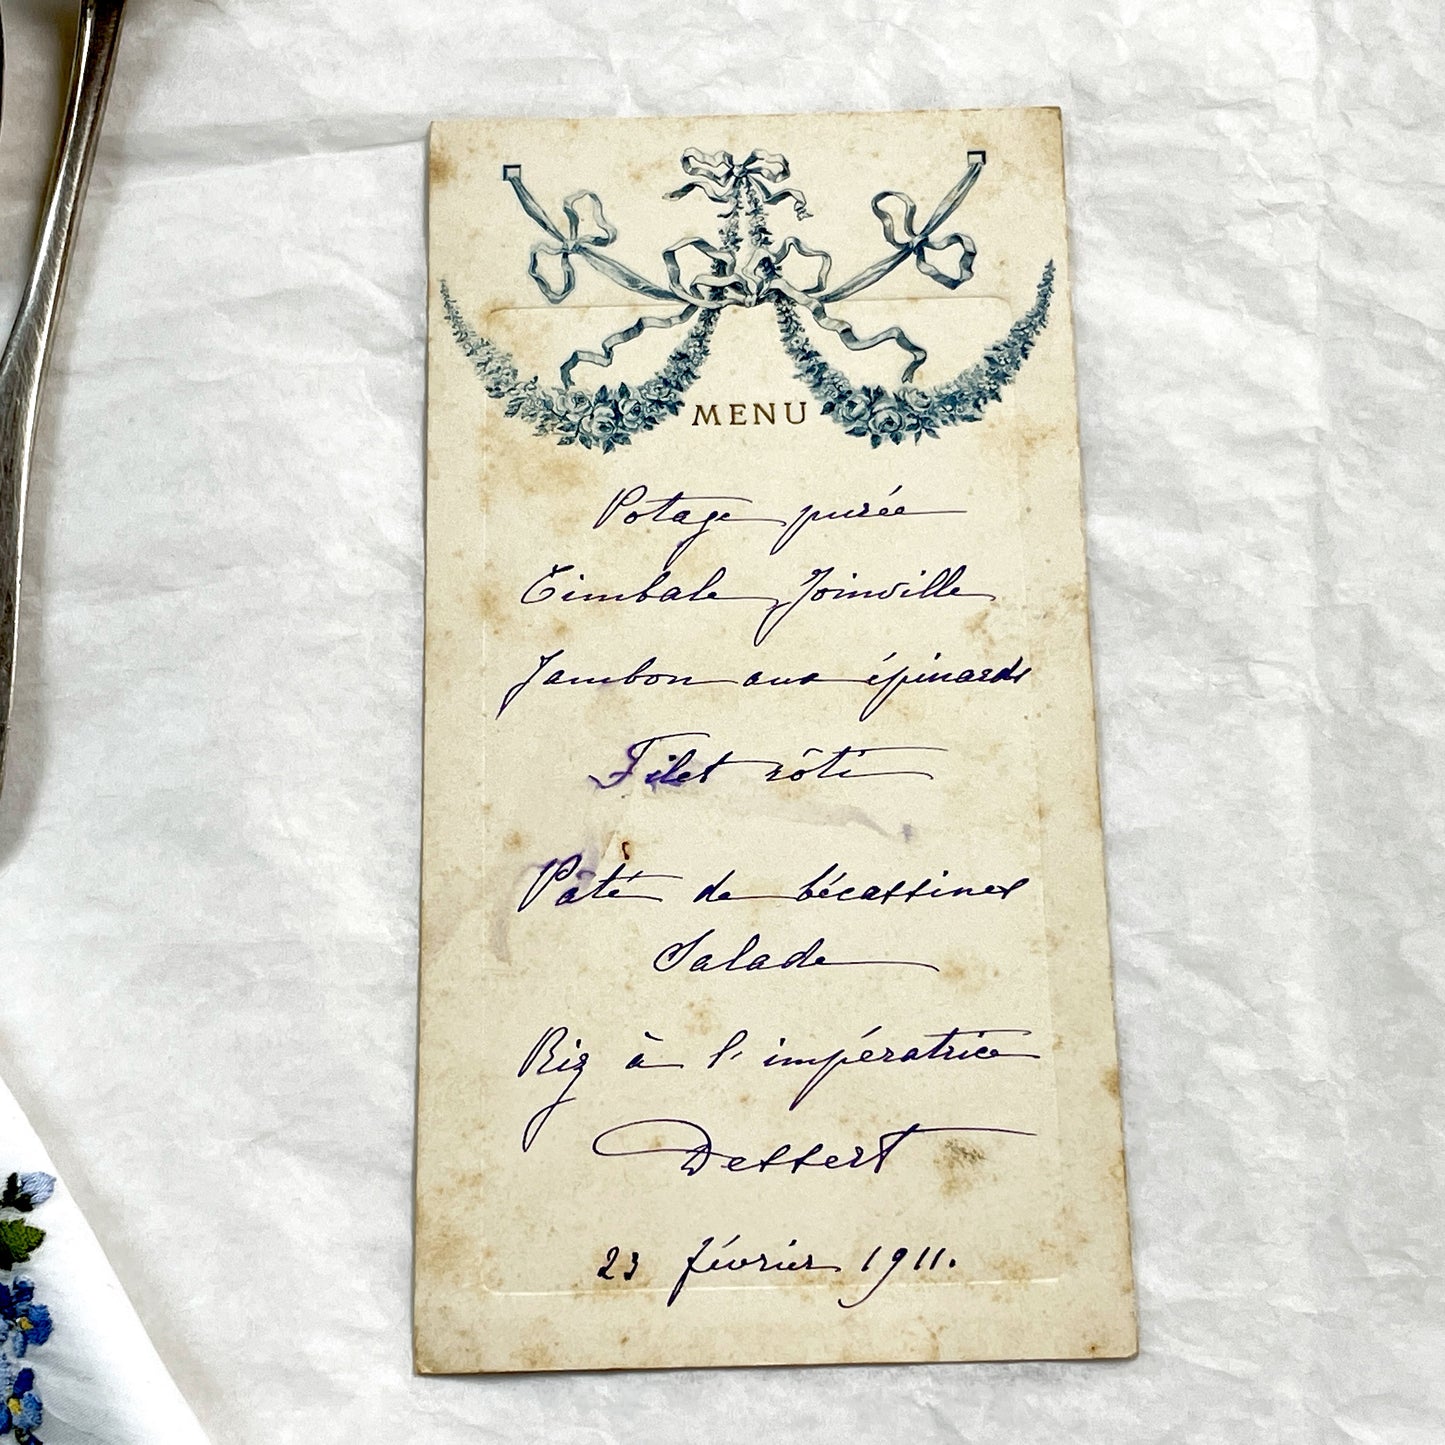 MENU
Potage purée
Timbale Joinville
Jambon aux épinards
Filet rôti
Pâté de bécassines
Salade
Riz à l'impératrice
Dessert
23 février 1911.